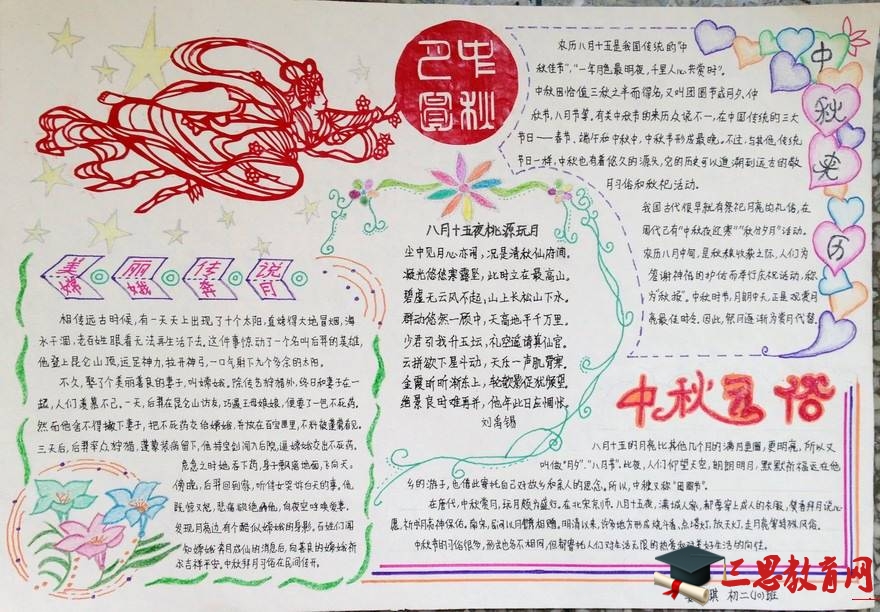 中秋
月圆
中秋来历
农历八月十五是我国传统的“中
秋佳节”，“一年月色最明夜，千里人心共赏时”。
中秋因恰值三秋之半而得名，又叫团圆节或月夕，仲
秋节，八月节等，有关中秋节的来历众说不一，在中国传统的三大
节日——春节，端午和中秋中，中秋节形成最晚。不过，与其他传统
节日一样，中秋也有着悠久的源头，它的历史可以追溯到远古的敬
月习俗和秋祀活动。
我国古代很早就有祭祀月亮的礼俗，在
周代已有“中秋夜迎寒”“秋分夕月”活动。
农历八月中旬，是秋粮收获之际，人们为
答谢神祐的护佑而举行庆祝活动，称
为“秋报”。中秋时节，月朗中天，正是观赏月
亮最佳时令。因此，祭月逐渐为赏月代替。
八月十五夜桃源玩月
尘中见月心亦闲，况是清秋仙府间。
凝光悠悠寒露坠，此时立在最高山。
碧虚无云风不起，山上长松山下水。
群动悠然一顾中，天高地平千万里。
少君引我升玉坛，礼空遥请真仙官。
云拼欲下星斗动，天乐一声肌骨寒。
金霞昕昕渐东上，轮欹影促犹频望。
绝景良时难再并，他年此日应惆怅。
刘禹锡
美丽佳说
嫦娥奔月
相传远古时候，有一天天上出现了十个太阳，直烤得大地冒烟，海
水干涸，老百姓眼看无法再生活下去。这件事惊动了一个名叫后羿的英雄，
他登上昆仑山顶，运足神力，拉开神弓，一口气射下九个多余的太阳。
不久，娶了个美丽善良的妻子，叫嫦娥。除传艺狩猎外，终日和妻子在一
起，人们羡慕不已。一天，后羿在昆仑山访友，巧遇王母娘娘，便要了一包不死药。
然而他舍不得撇下妻子，把不死药交给嫦娥，
三天后，后羿率众狩猎，蓬蒙装病留下，他持宝剑闯入后院，逼嫦娥交出不死药。
危急之时她吞下药，身子飘离地面，飞向天。
傍晚，后羿回到家，听侍女哭诉白天的事，他
既惊又怒，悲痛欲绝
发现月亮边有个酷似嫦娥的身影。百姓们闻
知嫦娥奔月成仙的消息后，向善良的嫦娥祈
求吉祥平安。中秋拜月习俗在民间传开。
中秋习俗
八月十五的月亮比其他几个月的满月更圆，更明亮，所以又
叫做“月夕”，“八月节”。此夜，人们仰望天空，朗朗明月，默默祈福远在他
乡的游子，也借此寄托自己对故乡和亲人的思念。所以，中秋又称“团圆节”。
在唐代，中秋赏月，玩月颇为盛行。在北宋京师，八月十五夜，满城人家，都要穿上成人的衣服，焚香拜月说心
愿，祈求月亮神保佑。南宋，民间以月饼相赠。明清以来，许多地方形成烧斗香，点塔灯，放天灯，走月亮等特殊风俗。
中秋节的习俗很多，形式也各不相同，但都寄托人们对生活无限的热爱和对美好生活的向往。
初二(10)班
三思教育网